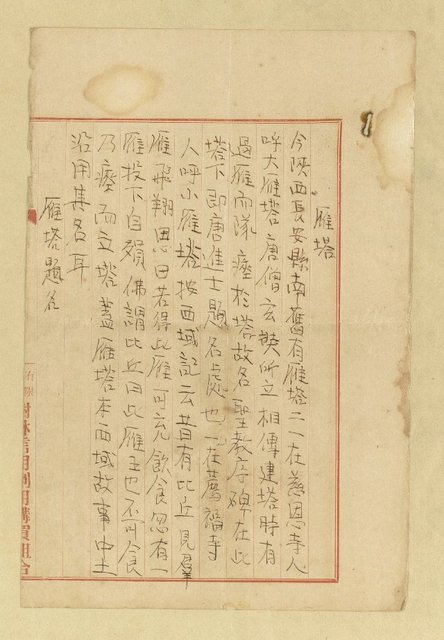 雁塔
今陝西長安縣南舊有雁塔二一在慈恩寺人
呼大雁塔唐僧玄奘所立相傳建塔時有
過雁而隊瘞於塔故名聖教序碑在此
塔下即唐進士題名處也一在薦福寺
人呼小雁塔按西域記云昔有比丘見羣
雁飛翔思曰若得此雁可充飲食忽有一
雁投下自殞佛謂比丘曰此雁王也不可食
乃瘞而立塔蓋雁塔本西域故事中土
沿用其名耳
雁塔題名
信用利用購買組合